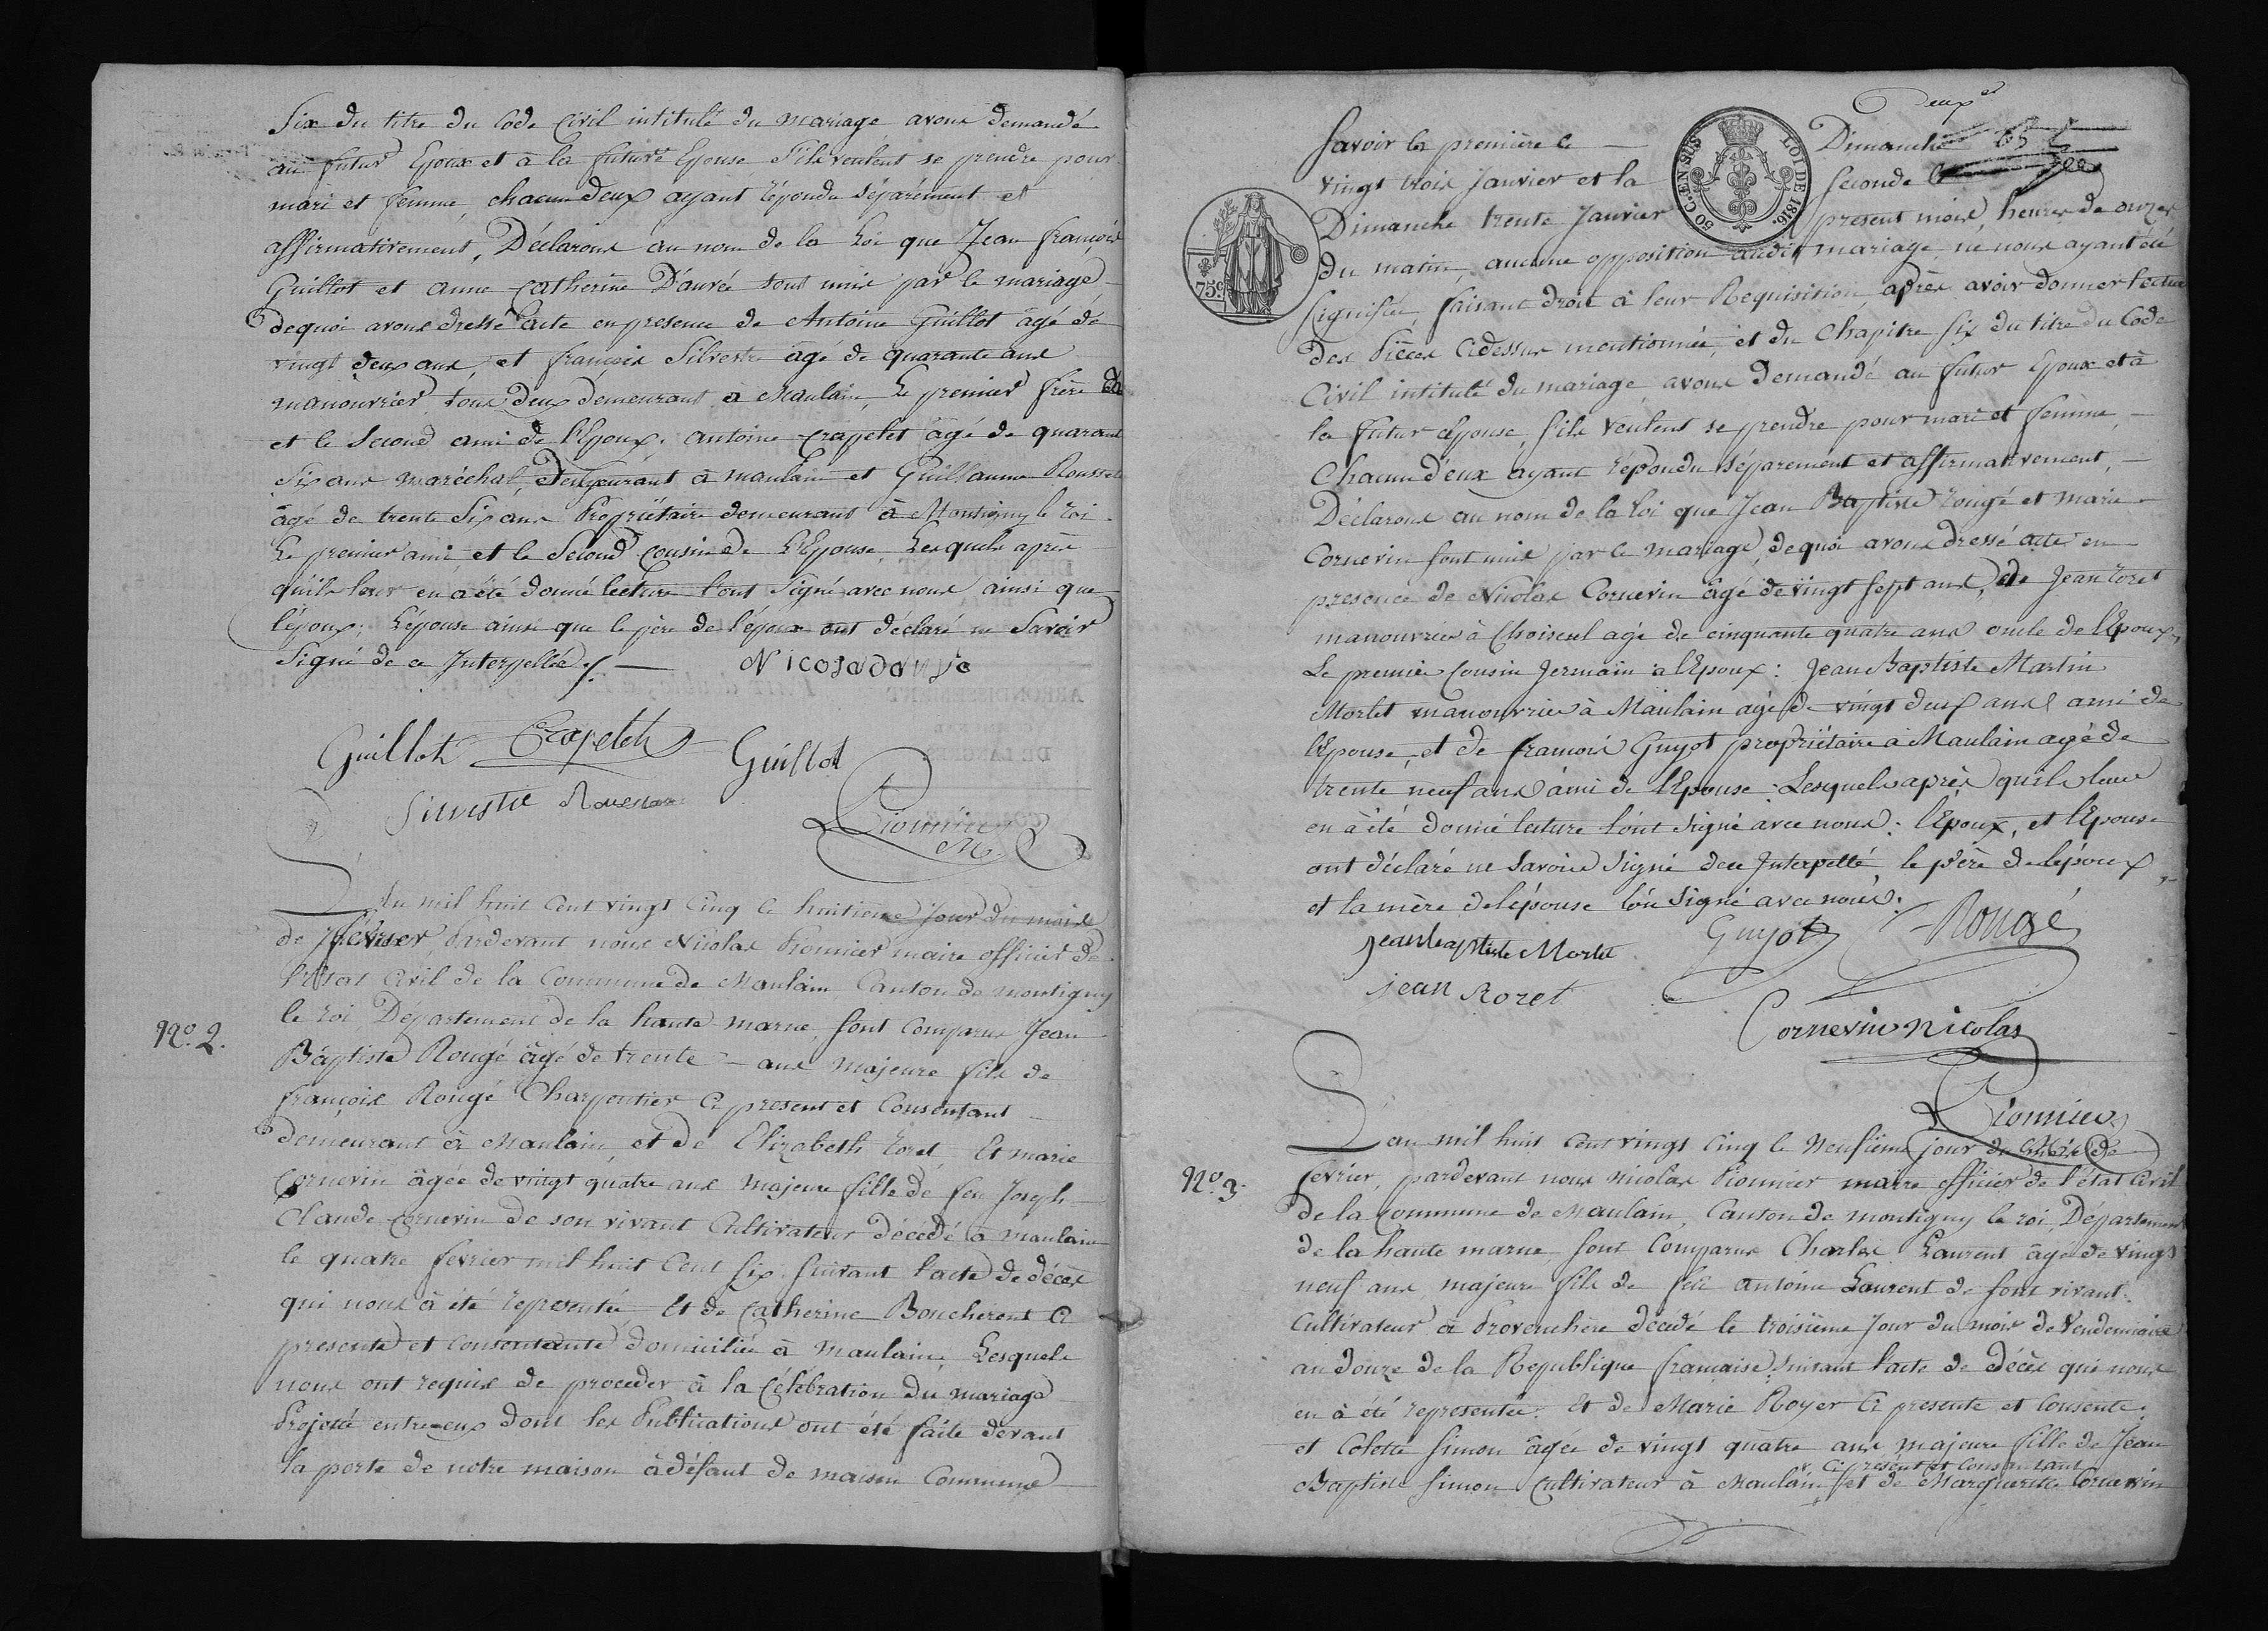 Six du titre du Code Civil intitulé du mariage avons demandé
au futur Epoux et à la future Epouse s'ils veulent se prendre pour
mari et femme, chacun deux ayant répondu séparément et
affirmativement, Déclarons au nom de la Loi que Jean françois
Guillot et anne Catherine Dauvée sont unis par le mariage
dequoi avons dressé acte en presence de Antoine Guillot âgé de
vingt deux ans, et françois Silvestre âgé de quarante ans
manouvrier, tous deux demeurant à Maulain, Le premier frère
et le Second ami de l'Epoux. antoine Crapelet âgé de quarante
Six ans maréchal, demeurant à maulain et Guillaume Rousselle
âgé de trente Six ans Propriétaire demeurant à Montigny le roi
Le premier ami, et le Second Cousin de L'Epouse, Lesquels après
qu'il leur en a été donné lecture l'ont Signé avec nous ainsi que
l'époux; L'épouse ainsi que le père de l'époux ont déclaré ne Savoir
Signé de ce Interpellés /.
Guillot Crapelet Guillot
Silvestre
Pionnier
M.
L'An mil huit Cent vingt Cinq le huitieme jour du mois
de février Pardevant nous Nicolas Pionnier maire officier de
l'Etat Civil de la Commune de Maulain, Canton de montigny
le roi, Département de la haute marne, sont Comparus Jean
N.o 2.
Baptiste Rougé âgé de trente — ans majeure fils de
françois Rougé Charpentier Ci present et Consentant
demeurant à Maulain, et de Elizabeth roret, Et marie
Cornevin âgée de vingt quatre ans majeure fille de feu Joseph
Claude Cornevin de son vivant Cultivateur décédé à maulain
le quatre fevrier mil huit Cent six suivant l'acte de décès
qui nous à été representée Et de Catherine Boucheront Ci
presente et consentante domiciliée à Maulain, Lesquels
nous ont requis de proceder à la Célébration du mariage
Projeté entre eux dont les Publications ont été faite devant
la porte de notre maison à défaut de maison Commune
Deux
Savoir la première le — Dimanche
vingt trois Janvier et la seconde
Dimanche trente Janvier present mois, heures de onzes
50 C. EN SUS
LOI DE 1816.
75c
du matin, aucune opposition audit mariage ne nous ayant été
Signifiée, faisant droit à leur Requisition, après avoir donner lecture
des Pièces Cidessus mentionnée, et du Chapitre Six du titre du Code
Civil intitulé du mariage avons demandé au futur Epoux et à
la futur épouse, s'ils veulent se prendre pour mari et femme,
Chacun d'eux ayant répondu séparement et affirmativement,
Déclarons au nom de la loi que Jean Baptiste rougé et marie
Cornevin sont unis par le mariage, dequoi avons dressé acte en
presence de Nicolas Cornevin âgé de vingt sept ans, de Jean roret
manouvrier à Choiseul agé de cinquante quatre ans oncle de l'Epoux,
Le premier Cousin Jermain a l'Epoux: Jean Baptiste Martin
Morlet manouvrier à Maulain agé de vingt deux ans ami de
l'Epouse, et de francois Guyot propriétaire à Maulain agé de
trente neuf ans ami de l'Epouse. Lesquels après qu'il leur
en à été donné lecture l'ont signé avec nous: l'Epoux, et l'Epouse
ont déclaré ne savoir signé de ce Interpellé, le père de l'époux,
et la mère de l'épouse signé avec nous.
jean baptiste Morlet Guyot Rougé
jean Roret
Cornevin Nicolas
Pionnier
L'an mil huit Cent vingt Cinq le Neufieme jour du mois de
N.o 3.
fevrier, pardevant nous Nicolas Pionnier maire officier de l'état Civil
de la Commune de Maulain, Canton de montigny le roi, Département
de la haute marne, sont Comparus Charles Laurent âgé de vingt
neuf ans, majeure fils de feu antoine Laurent de sont vivant
Cultivateur à Provenchère décédé le troisième Jour du mois de Vendemiaire
an douze de la Republique francaise, suivant l'acte de décès qui nous
en à été representée. Et de Marie Royer Ci presente et Consente.
et Colette Simon âgée de vingt quatre ans majeure fille de Jean
Ci present et Consentant
Baptiste Simon Cultivateur à Maulain et de Marguerite Cornevin